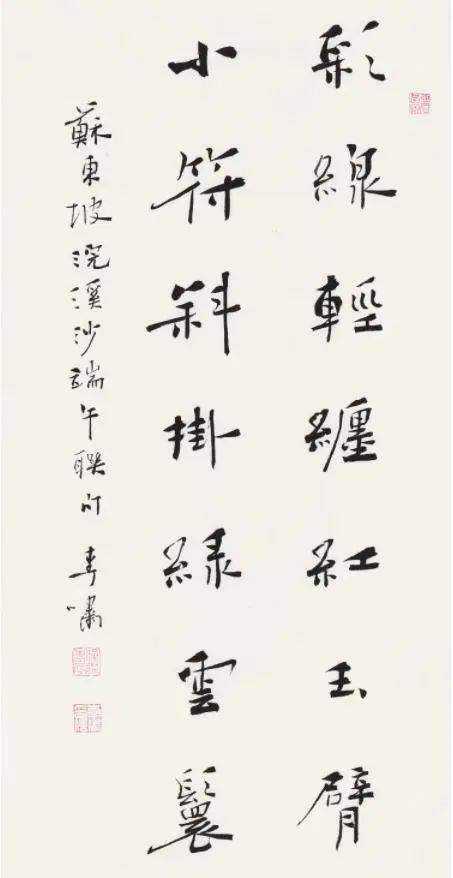 彩線輕纏紅玉臂
小符斜掛綠雲鬟
蘇東坡浣溪沙端午聯句 春嘯